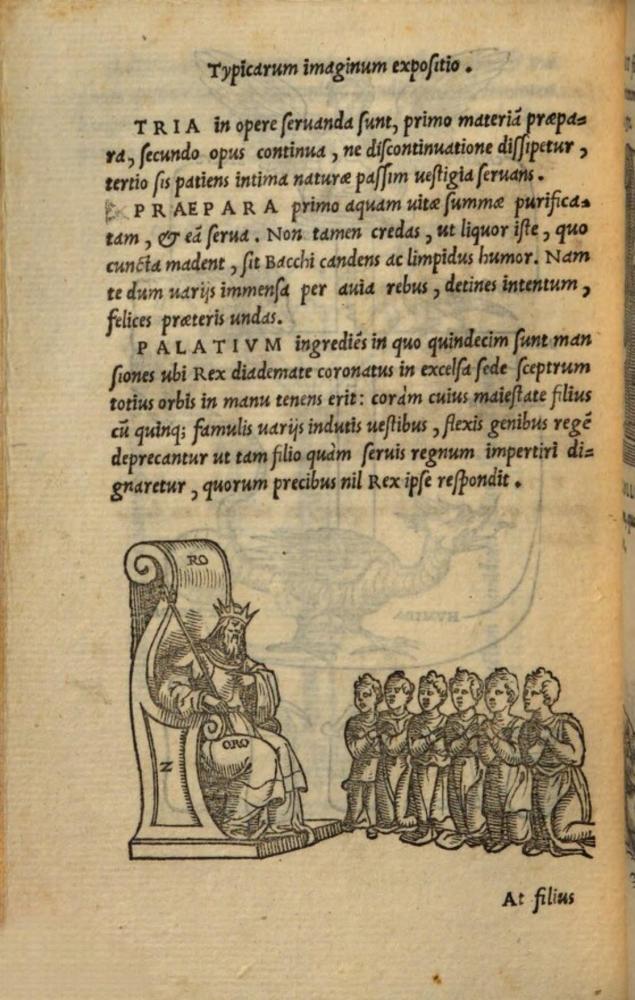 Typicarum imaginum expositio.
TRIA in opere seruanda sunt, primo materiã præpa=
ra, secundo opus continua, ne discontinuatione dissipetur,
tertio sis patiens intima naturæ passim uestigia seruans.
PRAEPARA primo aquam uitæ summæ purifica=
tam, & eã serua. Non tamen credas, ut liquor iste, quo
cuncta madent, sit Bacchi candens ac limpidus humor. Nam
te dum uarijs immensa per auia rebus, detines intentum,
felices præteris undas.
PALATIVM ingrediẽs in quo quindecim sunt man
siones ubi Rex diademate coronatus in excelsa sede sceptrum
totius orbis in manu tenens erit: coràm cuius maiestate filius
cũ quinq; famulis uarijs indutis uestibus, flexis genibus regẽ
deprecantur ut tam filio quàm seruis regnum impertiri di=
gnaretur, quorum precibus nil Rex ipse respondit.
RO
ORO
N
At filius